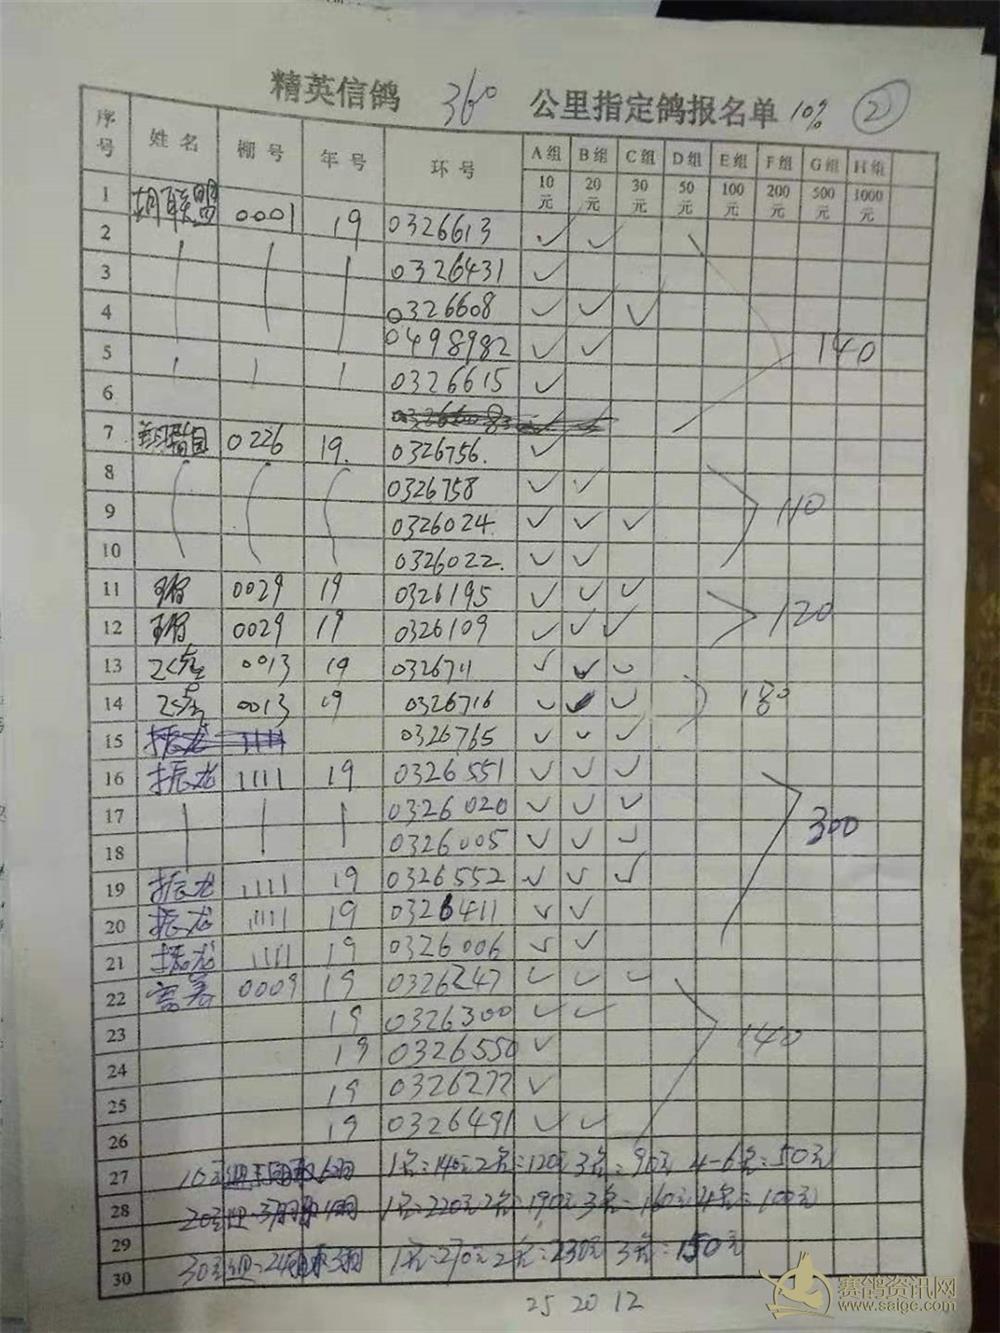 精英信鸽 360 公里指定鸽报名单 10% ②
序号 姓名 棚号 年号 环号 A组 B组 C组 D组 E组 F组 G组 H组
10元 20元 30元 50元 100元 200元 500元 1000元
1 胡联盟 0001 19 0326613 ✓ ✓
2 0326431 ✓
3 0326608 ✓ ✓ ✓
4 0498982 ✓ ✓ 140
5 0326615 ✓
6
7 0226 19. 0326756. ✓
8 0326758 ✓ ✓
9 0326024. ✓ ✓ ✓ 110
10 0326022. ✓ ✓
11 0029 19 0326195 ✓ ✓ ✓
12 0029 19 0326109 ✓ ✓ ✓ 120
13 0013 19 0326711 ✓ ✓ ✓
14 0013 19 0326716 ✓ ✓ ✓ 180
15 振龙 1111 0326765 ✓ ✓ ✓
16 振龙 1111 19 0326551 ✓ ✓ ✓
17 0326020 ✓ ✓ ✓ 300
18 0326005 ✓ ✓ ✓
19 振龙 1111 19 0326552 ✓ ✓ ✓
20 振龙 1111 19 0326411 ✓ ✓
21 振龙 1111 19 0326006 ✓ ✓
22 0009 19 0326247 ✓ ✓ ✓
23 19 0326300 ✓ ✓ 140
24 19 0326550 ✓
25 19 0326272 ✓
26 19 0326491 ✓ ✓
27 10元组 1名=140元 2名=120元 3名=90元 4-6名=50元
28 20元组 1名=220元 2名=190元 3名=160元 4名=100元
29
30 30元组 1名=270元 2名=230元 3名=150元
25 20 12
赛鸽资讯网
www.saigc.com